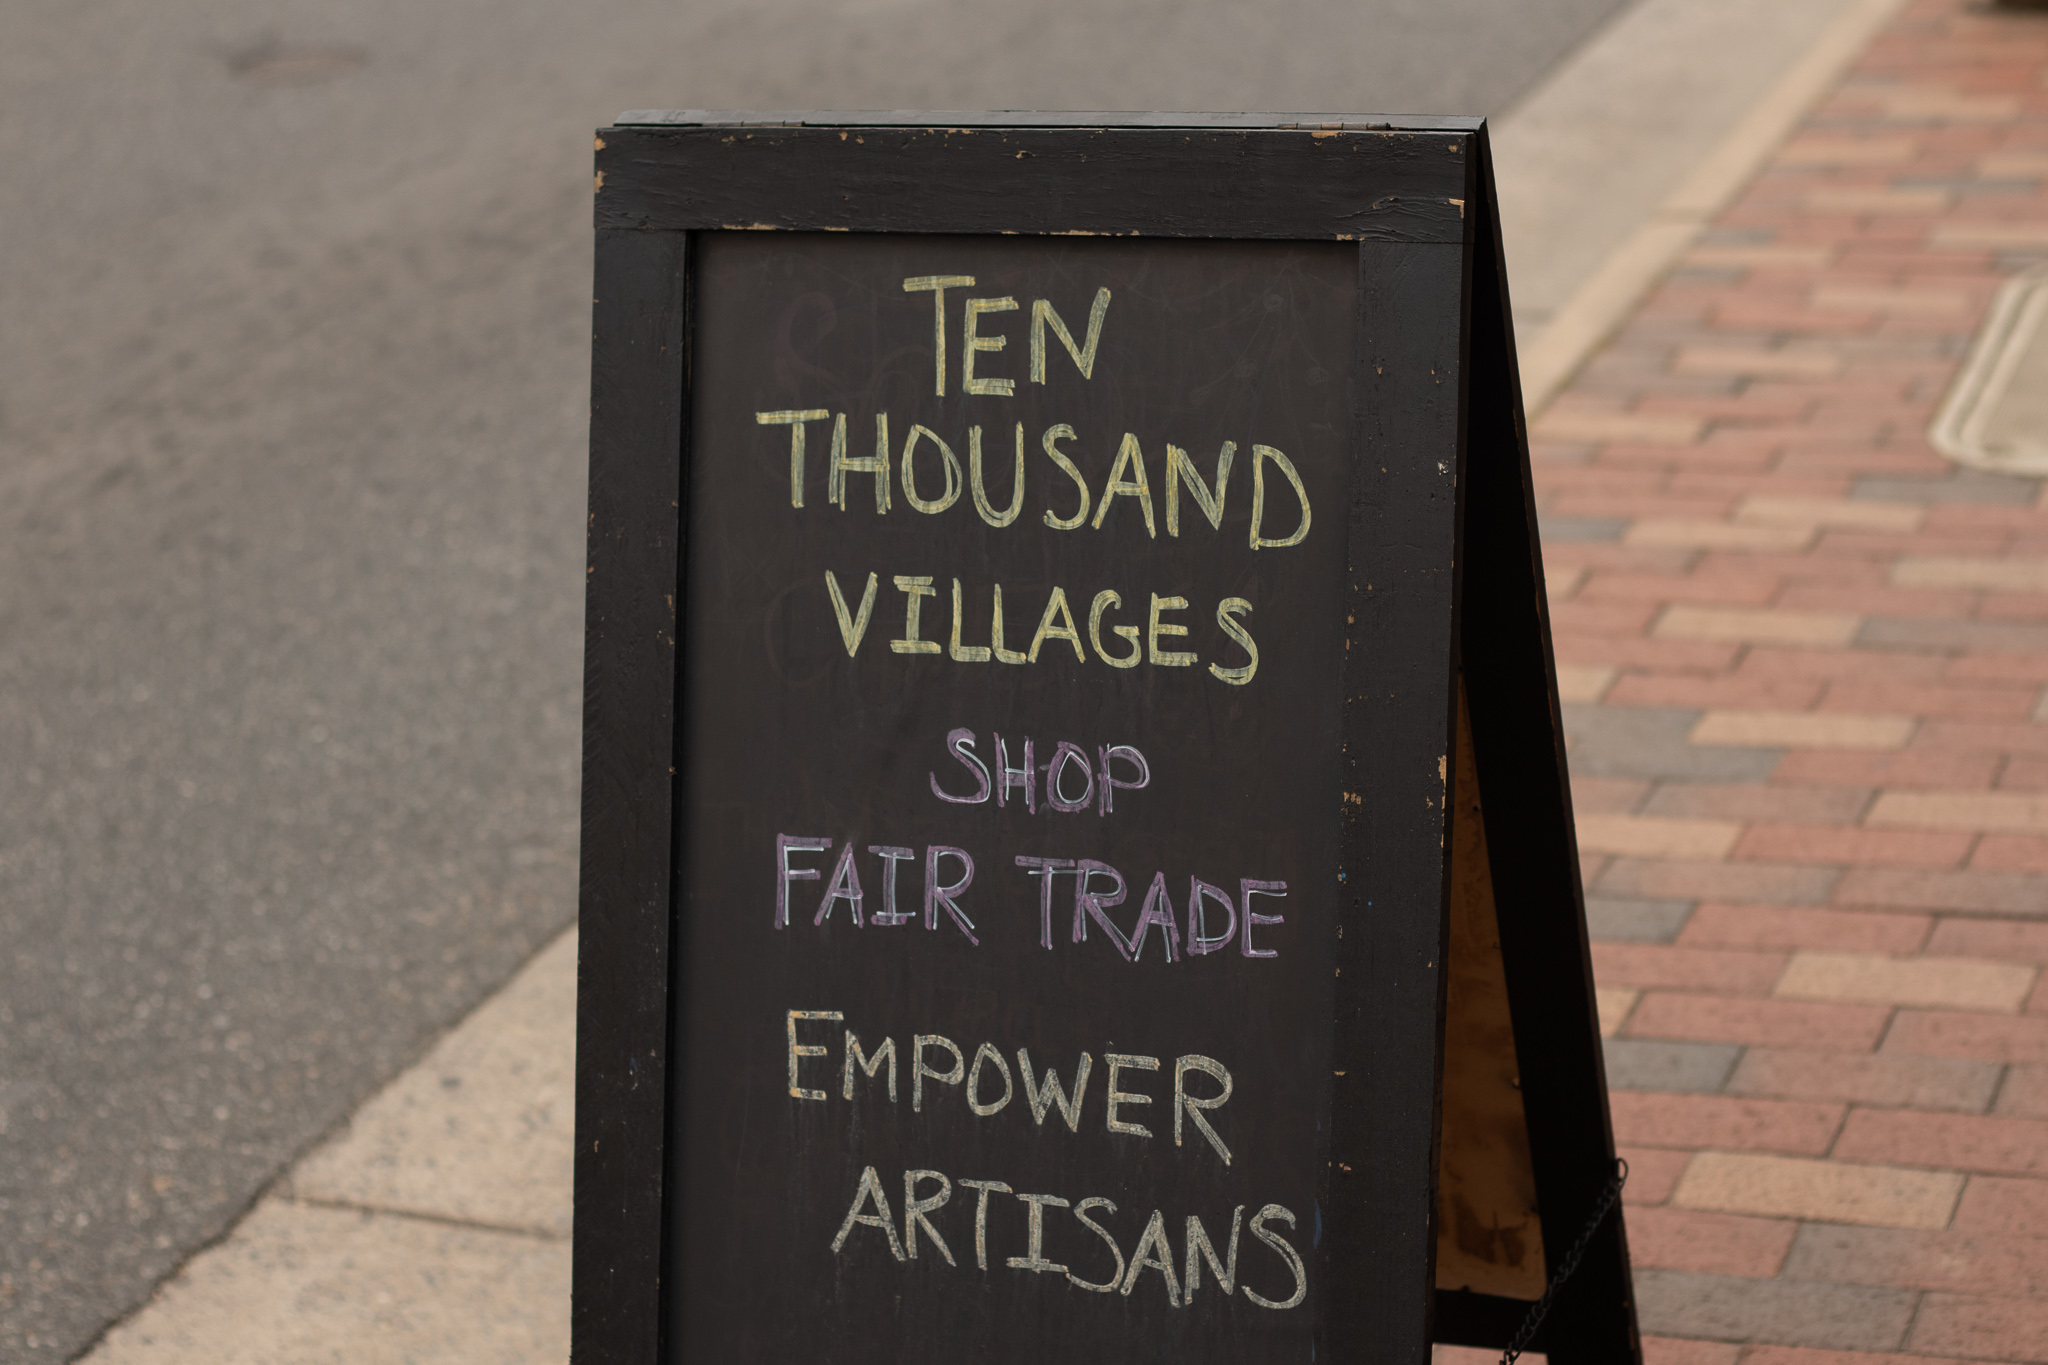 TEN
THOUSAND
VILLAGES
SHOP
FAIR TRADE
EMPOWER
ARTISANS